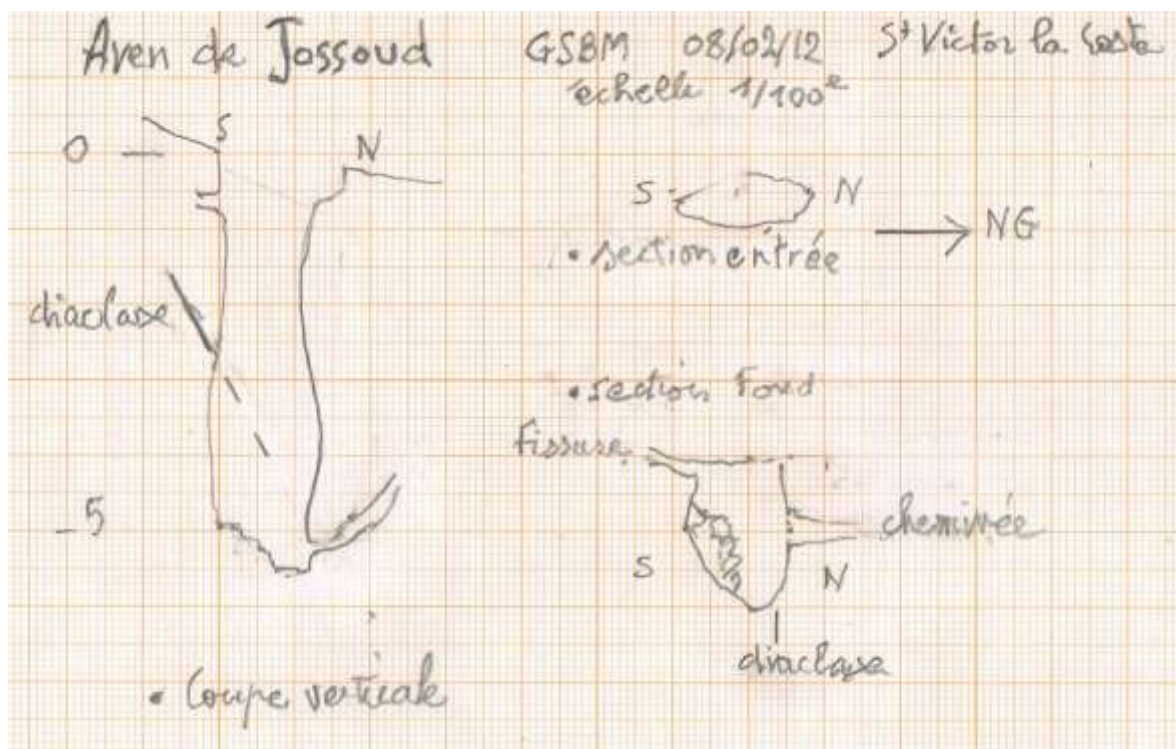 Aven de Jossoud GSBM 08/02/12 St Victor la Coste
echelle 1/100e
S
0
N
S N
NG
• section entrée
diaclase
• section Fond
fissure
- 5
cheminée
S N
diaclase
• Coupe verticale